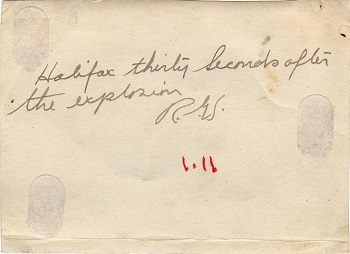 Halifax thirty seconds after
the explosion
R. W.
1.11